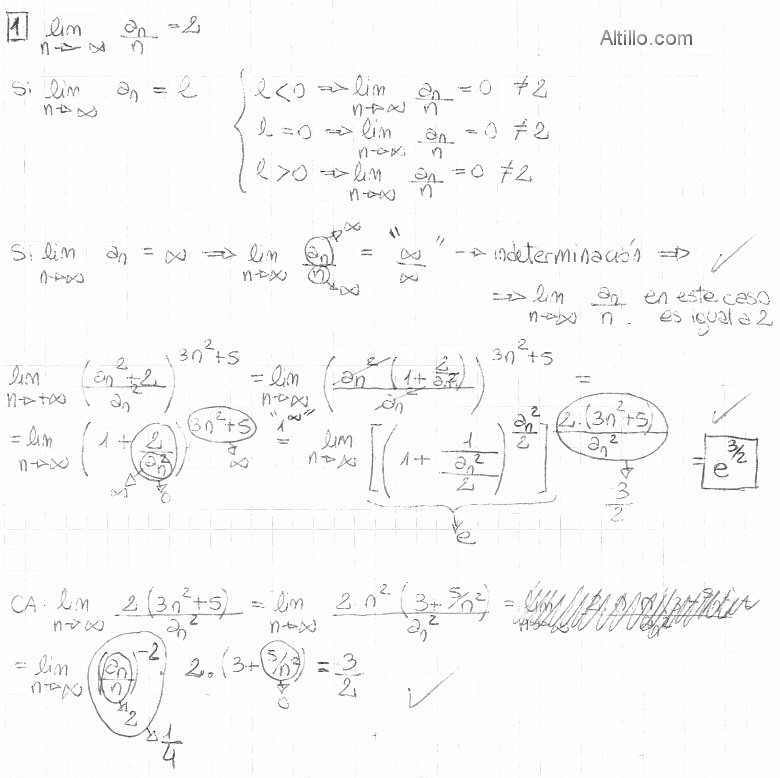 1 lim n→∞ an/n = 2
Altillo.com
Si lim n→∞ an = l { l < 0 ⇒ lim n→∞ an/n = 0 ≠ 2
l = 0 ⇒ lim n→∞ an/n = 0 ≠ 2
l > 0 ⇒ lim n→∞ an/n = 0 ≠ 2
Si lim n→∞ an = ∞ ⇒ lim n→∞ an/n = "∞/∞" → indeterminación ⇒ ✓
→∞ →∞
⇒ lim n→∞ an/n en este caso
es igual a 2
lim n→+∞ ((an² + 2)/an²)^(3n²+5) = lim n→∞ (an² (1 + 2/an²)/an²)^(3n²+5) =
= lim n→∞ (1 + 2/an²)^(3n²+5) "1^∞" = lim n→∞ [(1 + 1/(an²/2))^(an²/2)]^(2.(3n²+5)/an²) = e^(3/2) ✓
∞ 0 ∞ e 3/2
CA. lim n→∞ 2(3n²+5)/an² = lim n→∞ 2 n² (3 + 5/n²)/an² =
= lim n→∞ (an/n)^-2 . 2. (3 + 5/n²) = 3/2 ✓
2 0
1/4